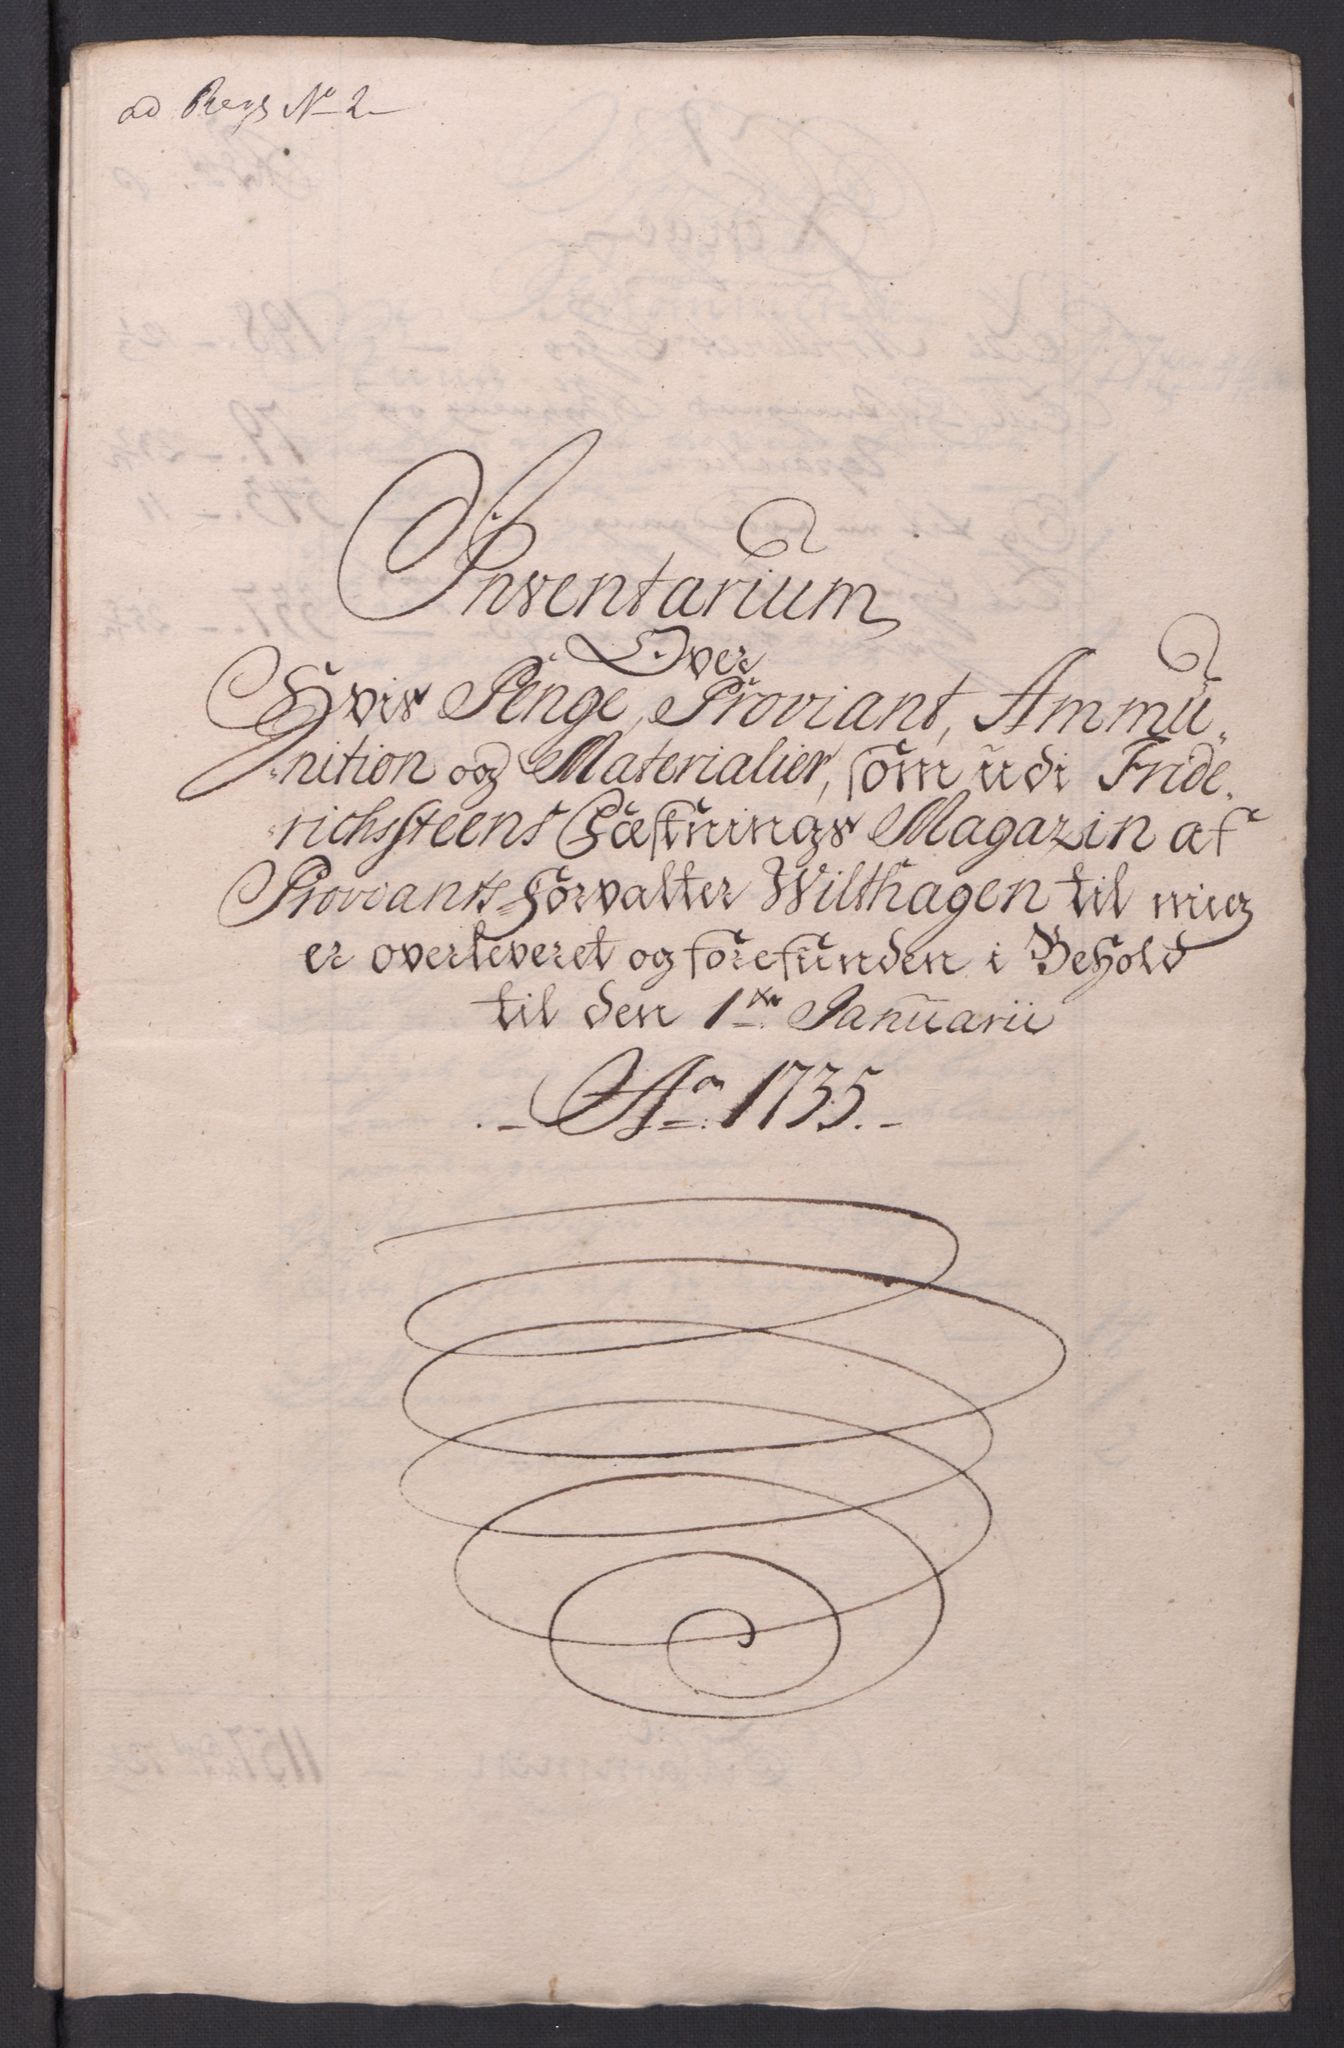 ad Regs No 2
Inventarium
Over
Hvis Penge, Proviant, Ammu-
nition og Materialier, som udi Fride-
richssteens Fæstnings Magazin af
Proviants Forvalter Wilthagen til mig
er overleveret og forefunden i Behold
til den 1te Januarii
Ao 1735.